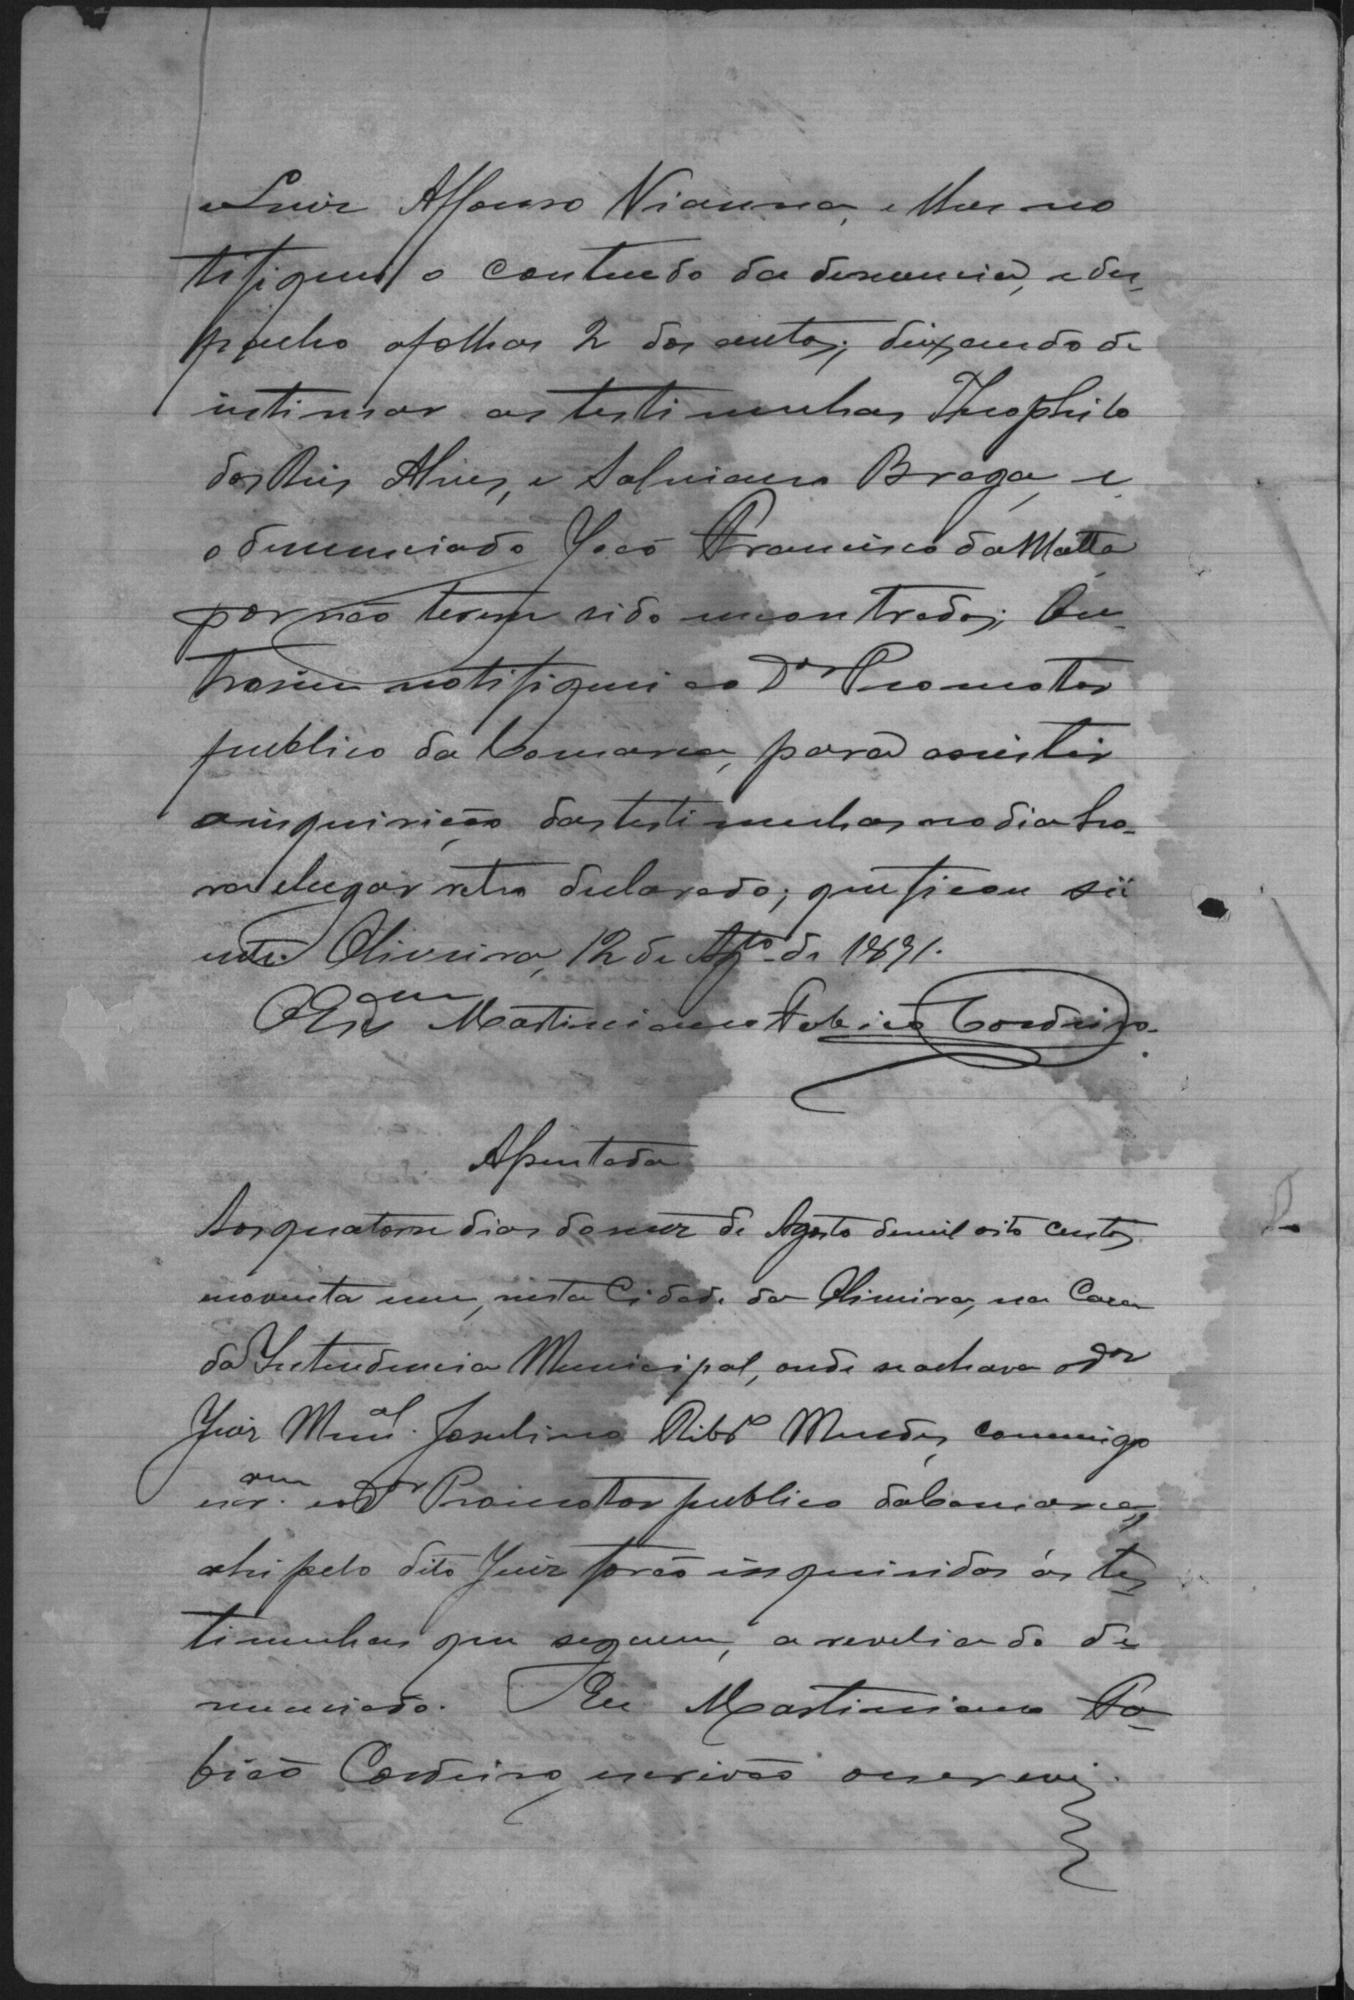 e Luiz Affonso Vianna, e lhes no
tifiquei o contendo da denuncia, e des
pacho a folhas 2 dos autos; deixando de
intimar as testimunhas Theophilo
dos Reis Alves, e Salviano Braga, e
o denunciado João Francisco da Matta
por não terem sido encontrados; Ou
trosim notifiquei ao Dor Promotor
publico da Comarca, para assistir
a inquirição das testimunhas no dia ho-
ra e lugar retro declarado; que ficou sci
ente. Oliveira, 12 de Agto de 1891.
O Escram Martiniano Fabião Cordeiro.
Assentada
Aos quatorse dias do mez de Agosto de mil oito centos
enoventa um, nesta Cidade da Oliveira, na Casa
da Intendencia Municipal, onde se achava o Dor
Juiz Munal. Joselino Ribro Mendes, commigo
escram. e o Dor Promotor publico da Comarca,
ahi pelo dito Juiz forão inquiridas as tes
timunhas que seguem, a revelia do de
nunciado. Eu Martiniano Fa-
bião Cordeiro, escrivão o escrevi.